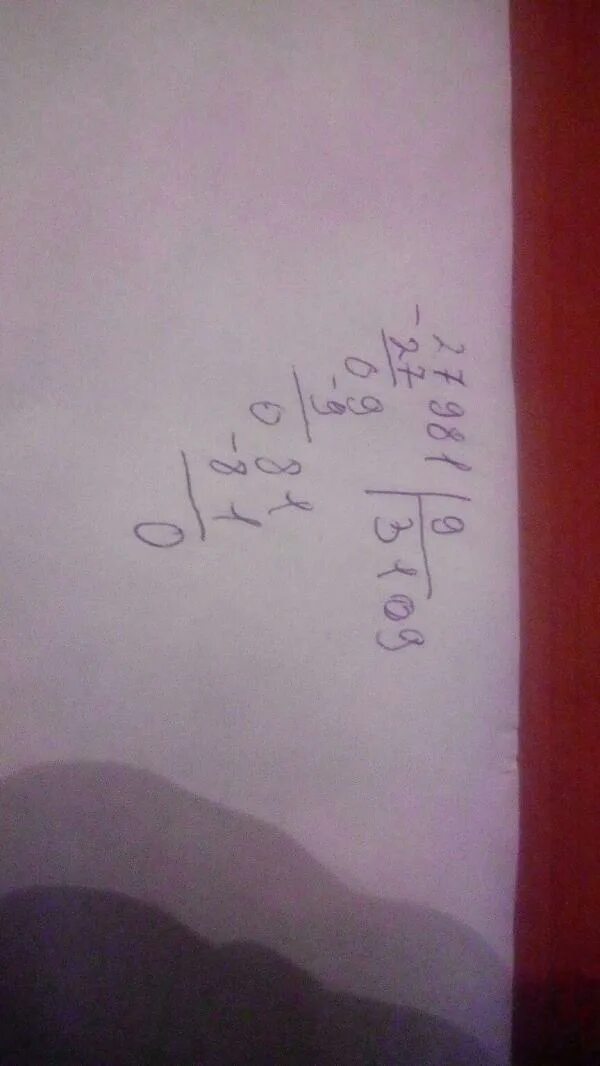 27981 | 9
-27 | 3109
09
-9
081
-81
0